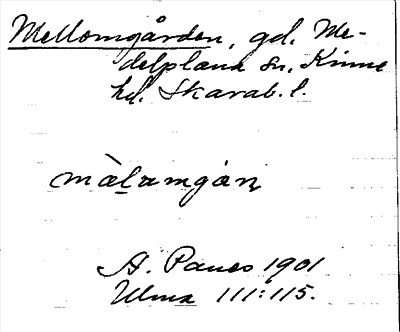 Mellomgården, gd. Me-
delplana sn, Kinne
hd. Skarab. l.
màlamgán
A. Paues 1901
Ulma 111:115.